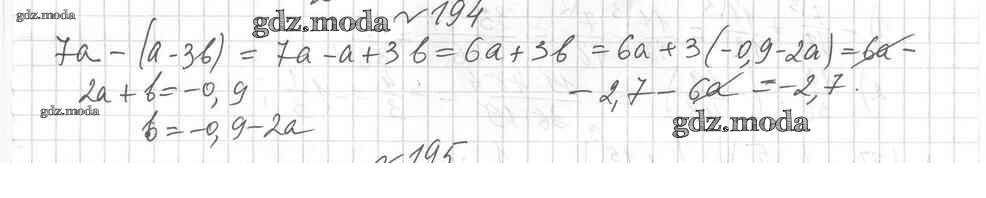 gdz.moda
gdz.moda
~ 194
7a - (a - 3b) = 7a - a + 3b = 6a + 3b = 6a + 3(-0,9 - 2a) = 6a -
2a + b = -0,9
- 2,7 - 6a = -2,7.
gdz.moda
b = -0,9 - 2a
gdz.moda
~ 195